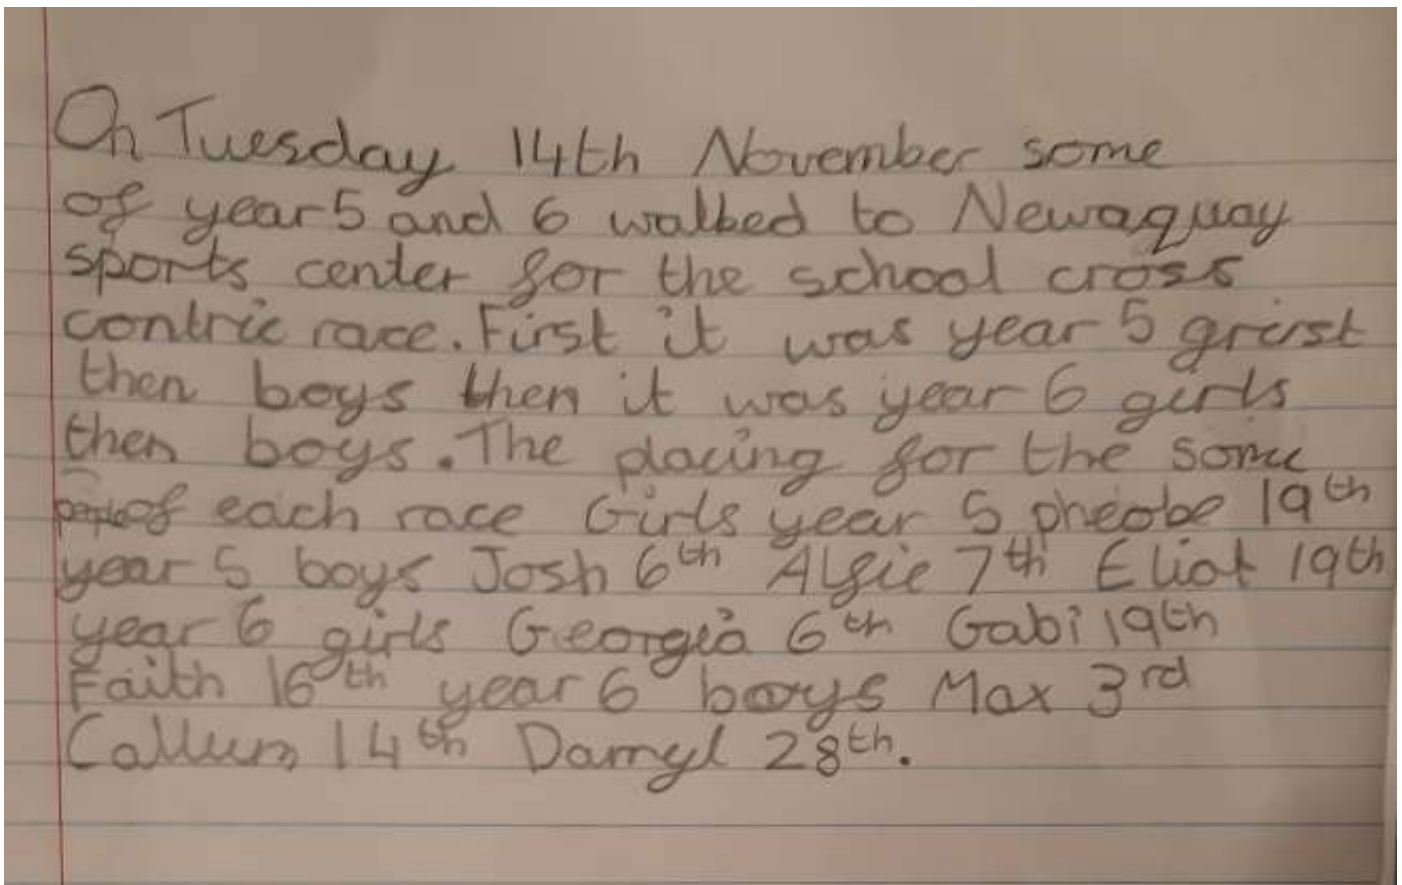 On Tuesday 14th November some
of year 5 and 6 walked to Newaquay
sports center for the school cross
contric race. First it was year 5 grirst
then boys then it was year 6 girls
then boys. The placing for the some
people of each race Girls year 5 pheobe 19th
year 5 boys Josh 6th Alfie 7th Eliot 19th
year 6 girls Georgia 6th Gabi 19th
Faith 16th year 6 boys Max 3rd
Callum 14th Darryl 28th.